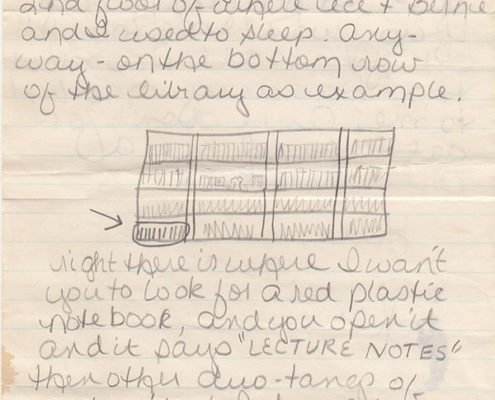 2nd floor of where Cece + Bernie
and I used to sleep. any-
way - on the bottom row
of the library as example.
right there is where I want
you to look for a red plastic
notebook, and you open it
and it says "LECTURE NOTES"
then other duo-tangs of